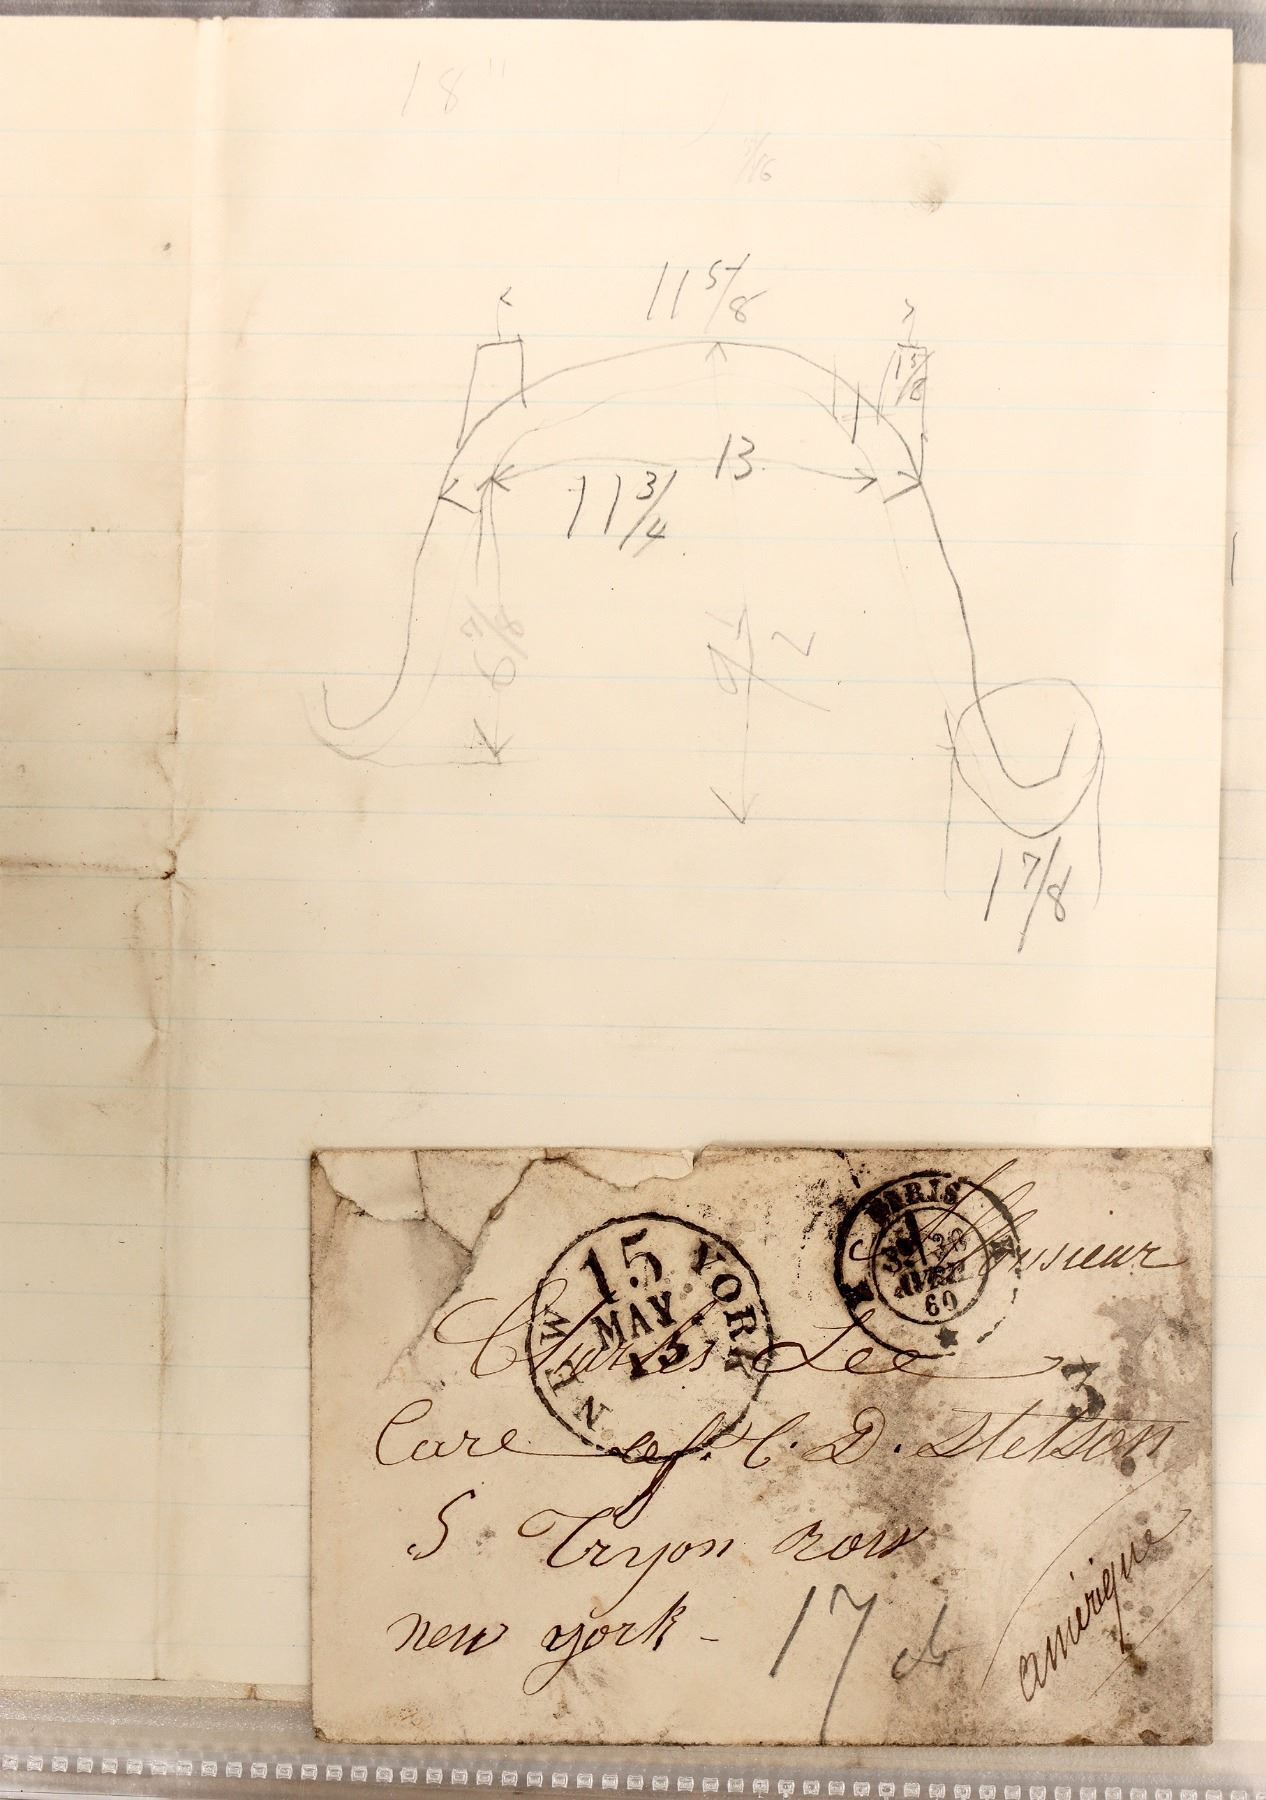 18"
5/16
11 5/8
1 5/8
13
11 3/4
6 7/8
9 1/2
1 7/8
PARIS
AVRIL
60
Monsieur
NEW YORK
15
MAY
13
Charles Lee
3
Care of. C. D. Stetson
5 Tryon row
new york -
17
amérique